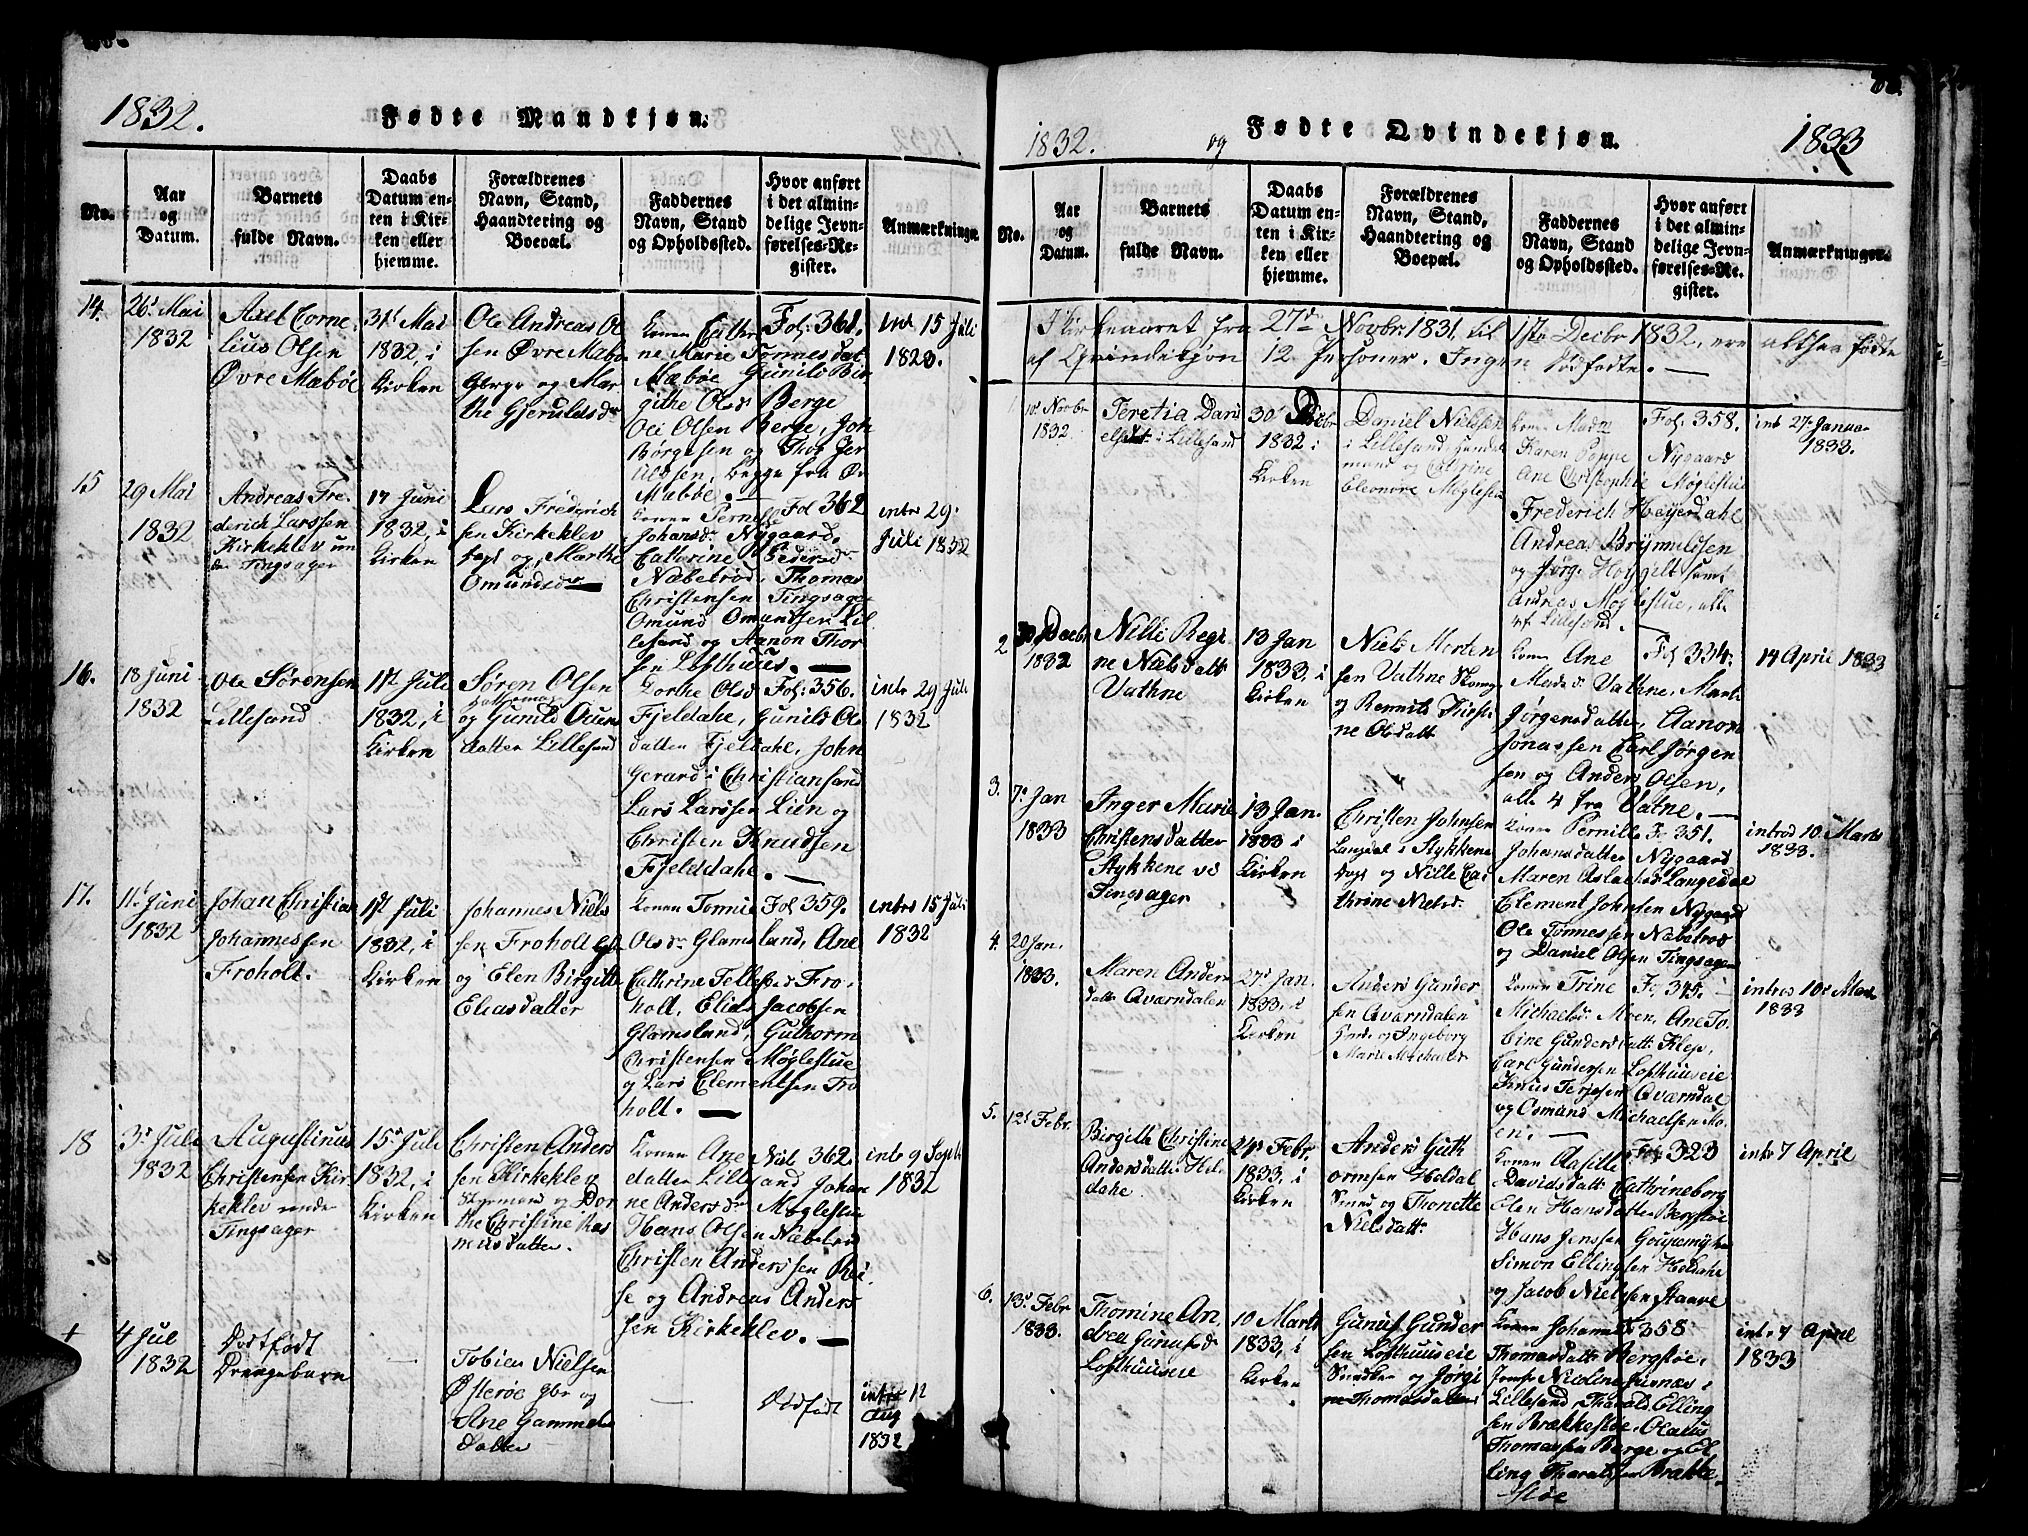 1832.
Fødte Mandkjøn.
No.
Aar og Datum.
Barnets fulde Navn.
Daabs Datum enten i Kirken eller hjemme.
Forældrenes Navn, Stand, Haandtering og Boepæl.
Faddernes Navn, Stand og Opholdssted.
Hvor anført i det almindelige Jevnførelses-Register.
Anmærkninger
14.
26' Mai
1832
Axel Corne-
lius Olsen
Øvre Mæbøe
31d Mai
1832, i
Kirken
Ole Andreas Ol
sen Øvre Mæbøe
og Mar
the Gjeruldsdr
Konen Cathr
ne Marie Tønnesdat
Mæbøe Gunild Bir
githe Olsdr Berge
Ole Olsen Berge, Joh
Børgesen og Thor Jer
uldsen, begge fra Øv
Mæbøe. —
Fol: 361.
int 15 Juli
1823.
15
29 Mai
1832
Andreas Fre-
derich Larssen
Kirkeklev un
der Tingsager
17 Juni
1832, i
Kirken
Lars Frederich
sen Kirkeklev
og Marthe
Omundsdr
Konen Pernille
Johansdr Nygaard,
Catharine Pedersdr
Næbelrød, Thomas
Christensen Tingsager
Omund Omundsen Lil
lesand og Aanon Thor
sen Lofthuus. —
Fol 362
intr 29.
Juli 1832
16.
18 Juni
1832
Ole Sørensen
Lillesand
1st Juli
1832, i
Kirken
Søren Olsen
og Gunild Oeun
datter Lillesand
Dorthe Olsd
Fjeldahe, Gunild Ols
datter Fjeldahe, John
Gerard i Christiansand
Lars Larssen Lien og
Christen Knudsen
Fjelddahe. —
Fol: 356.
intr 29 Juli
1832
17.
11' Juni
1832
Johan Christian
Johannessen
Froholt.
1st Juli
1832, i
Kirken
Johannes Niels
sen Froholt
og Elen Birgitte
Eliasdatter
Konen Tomine
Olsdr Glamsland, Ane
Cathrine Tellefsd Fro-
holt, Elias Jacobsen
Glamsland, Guthorm
Christensen Møglestue
og Lars Clementsen Fro
holt. —
Fol 359.
intro 15 Juli
1832
18
3' Juli
1832
Augustinus
Christensen Kir
keklev under
Tingsager
15d Juli
1832, i
Kirken
Christen Anders
sen Kirkeklev
Styrmand og Dor
the Christine Ras
musdatter.
Konen Ane Niel
datter Lillesand Johan
ne Andersdr Møglestue
Hans Olsen Næbelrød
Christen Anderssen Rei
se og Andreas Anders
sen Kirkeklev. —
362.
intr 9 Septb
1832
+
4 Jul
1832
Dødfødt
Drengebarn
Tobias Nielsen
Østerøe gbr og
Ane Gammels
datter
Dødfødt
intro 12
Aug
1832
1832.
og
Fødte Qvindekjøn.
1833
No.
Aar og Datum.
Barnets fulde Navn.
Daabs Datum enten i Kirken eller hjemme.
Forældrenes Navn, Stand, Haandtering og Boepæl.
Faddernes Navn, Stand og Opholdssted.
Hvor anført i det almindelige Jevnførelses-Register.
Anmærkninger.
I Kirkeaaret fra 27d Novbr 1831, til 1ste Decbr 1832, ere altsaa fødte
af Qvindekjøn 12 Personer. Ingen Dødfødte. —
1
10' Novbr
1832.
Teretia Dani
elsdt i Lillesand
30' Decbr
1832 i
Kirken
Daniel Nielsen
i Lillesand, Handels
mand og Catrine
Eleonore Møglestue
Konen Madm
Karen Poppe Nygaard
Ane Christophie Møglestue
Frederich Heyerdahl
Andreas Brynnildsen
og Jørge Høygilt samt
Andreas Møglestue, alle
af Lillesand. —
Fol: 358.
int 27. Januar
1833.
2
30 Decbr
1832
Nilli Regi-
ne Nielsdatt
Vathne
13 Jan
1833, i
Kirken
Niels Morten
sen Vathne
og Bennit Kirsti
ne Olsdatt
Konen Ane
Madsdr Vathne, Mart
Jørgensdatter, Aanon
Jonassen Carl Jørgen
sen og Anders Olsen,
alle 4 fra Vatne. —
Fol 334.
14 April 1833
3.
7' Jan
1833
Inger Marie
Christensdatter
Stykkene ve
Tingsager
13 Jan.
1833 i
Kirken
Christen Johnsen
Langdal i Stykkene
og Nille Cat
thrine Nielsdr
Konen Pernille
Johansdatter Nygaard
Maren Aslachsd Langedal
Clement Johnsen Nygaard
Ole Tønnessen Næbelrød
og Daniel Olsen Tingsager
Fo 351.
introd 10. Marts
1833.
4.
20 Jan.
1833.
Maren Anders
datt Qvarndalen
27d Jan.
1833, i
Kirken
Anders Gunder
sen Qværndalen
og Ingeborg
Marie Michaelsd
Konen Trine
Michaelsdr Moen, Ane To
bine Gundersdatt Klep,
Carl Gundersen Lofthuuseie
Knud Terjesen Qværndal
og Osmund Michaelsen Mo-
en. —
Fo 345.
intros 10' Mart
1833
5.
12' Febr.
Birgitte Christine
Andersdatt Hel
dahe.
24d Febr.
1833, i
Kirken
Anders Guth
ormsen Heldal
Smed og Thonette
Nielsdatt.
Konen Aasille
Davidsdatt Cathrineborg
Elen Hansdatter Bergstøe
Hans Jenssen
Simon Ellingsen Heldahe
og Jacob Nielssen Staave
Fo: 323
intr 7 April
6.
13' Febr
1833.
Thomine An
drea Gunufsd
Lofthuuseie
10 Marts
1833, i
Kirken
Gunuf Gunder
sen Lofthuuseie
Snedker og Jørgi
ne Thomasdatter
Konen Johanne
Thomasdatt Bergstøe,
Jomfr Nicoline Juvnæs i
Lillesand, Tharald Elling
sen Brækkestøe, Olaus
Thomassen Berge og El
ling Tharaldsen Brække-
støe
F 358
int 7 April
1833